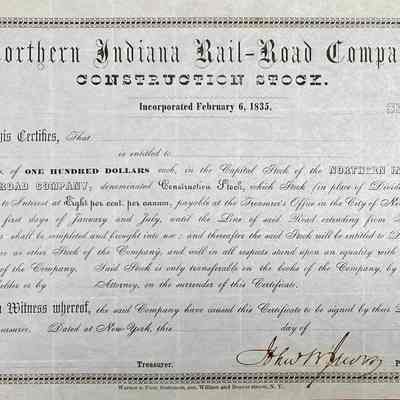 Northern Indiana Rail-Road Compa
CONSTRUCTION STOCK.
Incorporated February 6, 1835.
his Certifies, That
is entitled to
of ONE HUNDRED DOLLARS each, in the Capital Stock of the NORTHERN IN
ROAD COMPANY, denominated Construction Stock, which Stock (in place of Divide
to Interest at Eight per cent. per annum, payable at the Treasurer's Office in the City of Ne
first days of January and July, until the Line of said Road extending from
s shall be completed and brought into use; and thereafter the said Stock will be entitled to D
e as other Stock of the Company, and will in all respects stand upon an equality with
of the Company. Said Stock is only transferable on the books of the Company, by
older or by Attorney, on the surrender of this Certificate.
n Witness whereof, the said Company have caused this Certificate to be signed by their
easurer. Dated at New-York, this day of
Treasurer. P